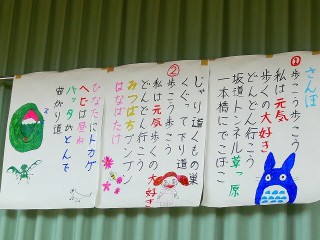 さんぽ
①歩こう歩こう
私は元気
歩くの大好き
どんどん行こう
坂道トンネル草っ原
一本橋にでこぼこ
じゃり道
くもの巣
くぐって下り道
②歩こう歩こう
私は元気歩くの大好き
どんどん行こう
みつばちブンブン
はなばたけ
ひなたにトカゲ
へびは昼ね
バッタがとんで
曲がり道